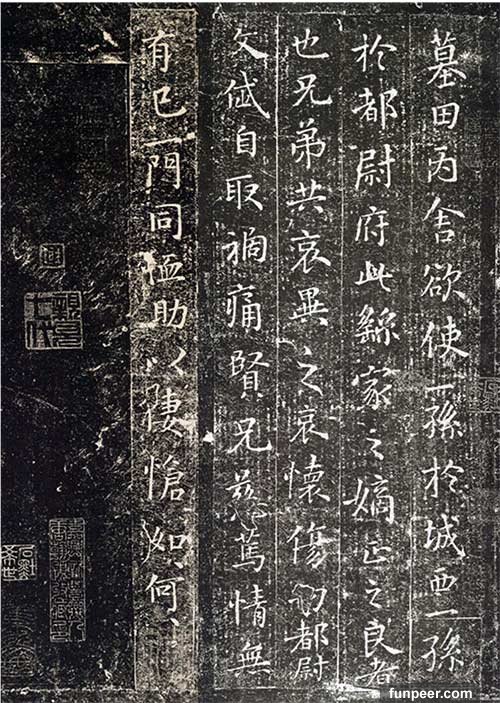 墓田丙舍欲使一孫於城西一孫
於都尉府此繇家之嫡正之良者
也兄弟共哀異之哀懷傷切都尉
文岱自取禍痛賢兄慈篤情無
有已一門同恤助以悽愴如何〻
funpeer.com